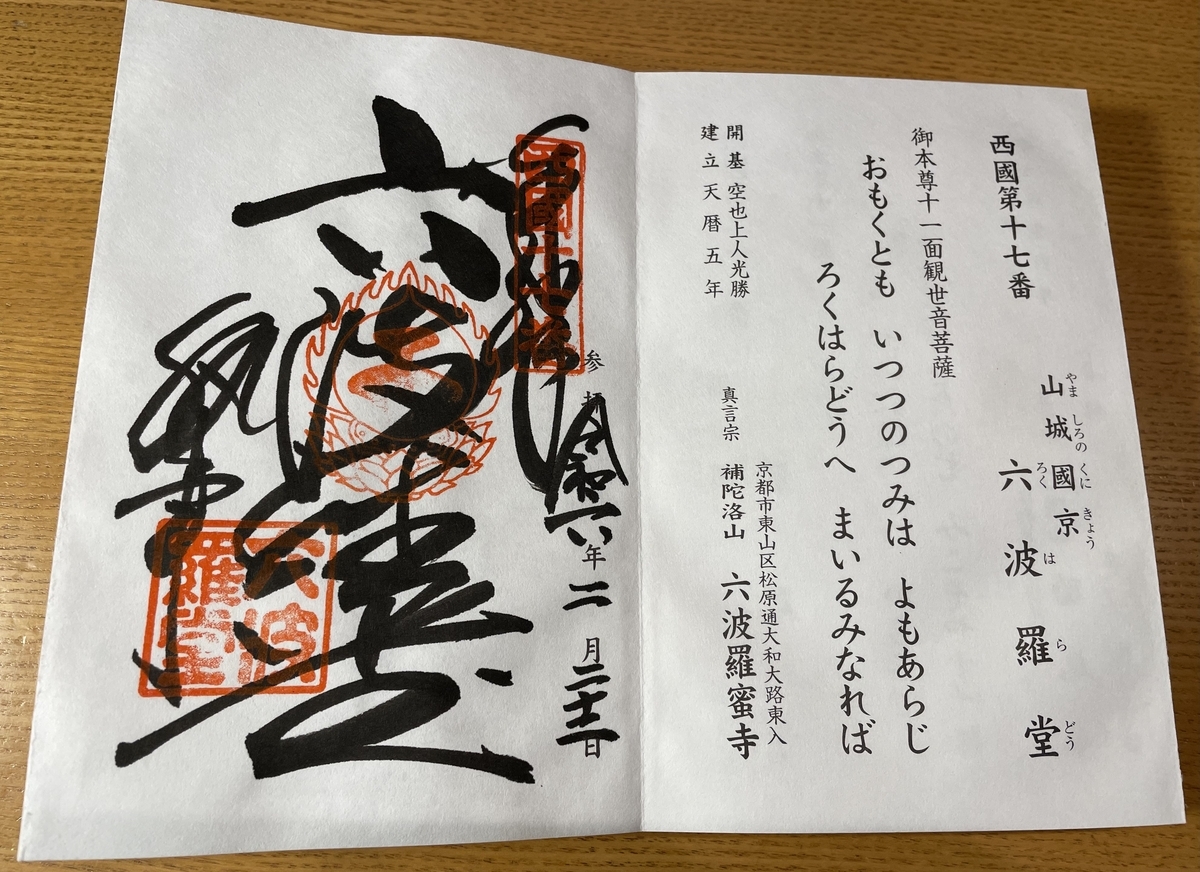 西國第十七番
山城國京
やましろのくにきょう
六波羅堂
ろくはらどう
御本尊十一面観世音菩薩
おもくとも いつつのつみは よもあらじ
ろくはらどうへ まいるみなれば
開基 空也上人光勝
建立 天暦五年
京都市東山区松原通大和大路東入
真言宗 補陀洛山 六波羅蜜寺
参拝 令和六年二月二十二日
西國十七番
六波羅堂